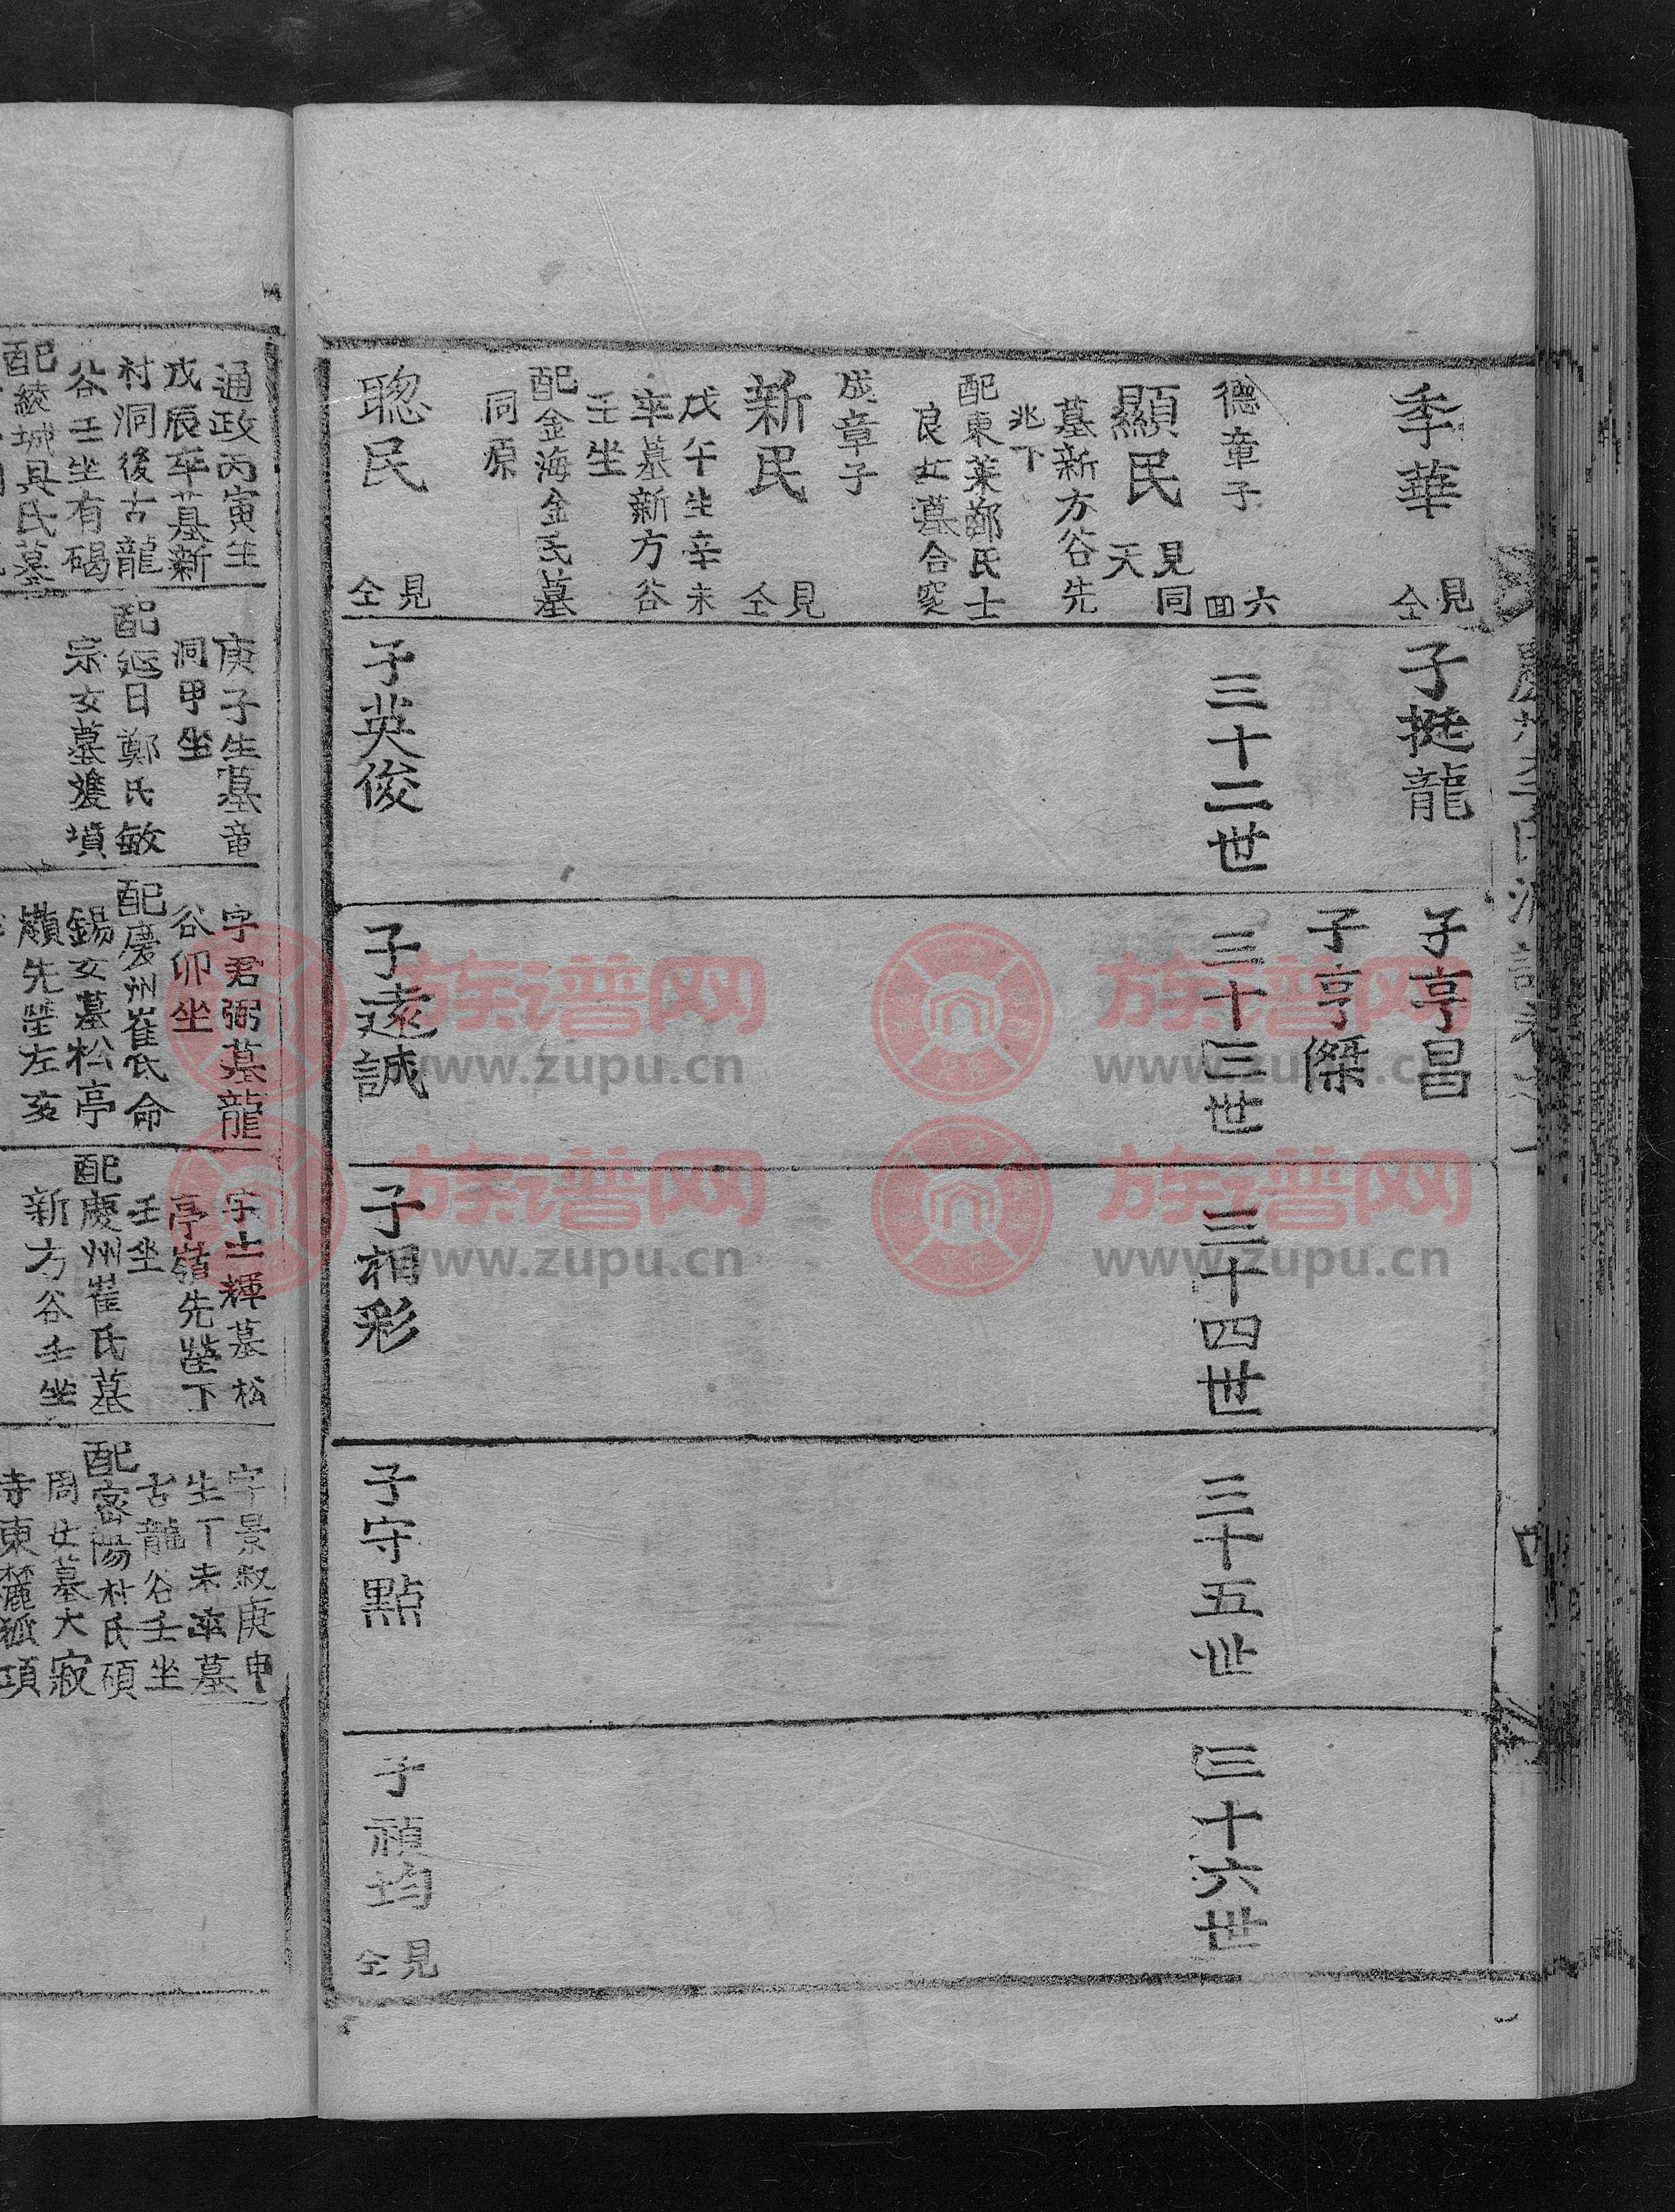 季華
見仝
德章子
六
面
顯民
見同
天
墓新方谷先
兆下
配東萊鄭氏士
良女墓合窆
成章子
新民
見仝
戊午生辛未
卒墓新方谷
壬坐
配金海金氏墓
同原
聰民
見仝
子挺龍
三十二世
子英俊
子亨昌
子亨傑
三十三世
子遠誠
三十四世
子相彩
三十五世
子守點
三十六世
子禎均
見仝
通政丙寅生
戊辰卒墓新
村洞後古龍
谷壬坐有碣
配綾城具氏墓
庚子生墓竜
洞甲坐
配延日鄭氏敏
宗女墓雙墳
字君弼墓龍
谷卯坐
配慶州崔氏命
錫女墓松亭
嶺先塋左亥
字士輝墓松
亭嶺先塋下
壬坐
配慶州崔氏墓
新方谷壬坐
字景叙庚申
生丁未卒墓
古龍谷壬坐
配密陽朴氏碩
周女墓大寂
寺東麓狐項
族谱网
www.zupu.cn
族谱网
www.zupu.cn
族谱网
www.zupu.cn
族谱网
www.zupu.cn